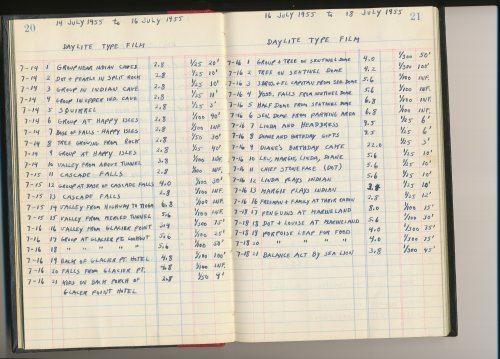 20
14 JULY 1955 to 16 JULY 1955
DAYLITE TYPE FILM
7-14 1 GROUP NEAR INDIAN CAVES 2.8 1/25 20'
7-14 2 DOT & PEARLS IN SPLIT ROCK 2.8 1/25 10'
7-14 3 GROUP IN INDIAN CAVE 2.8 1/25 10'
7-14 4 GROUP IN UPPER IND. CAVE 2.8 1/25
7-14 5 SQUIRREL 2.8 1/25
7-14 6 GROUP AT HAPPY ISLES 2.8 1/100 40'
7-14 7 BASE OF FALLS - HAPPY ISLES 2.8 1/100 INF.
7-14 8 TREE GROWING FROM ROCK 2.8 30'
7-14 9 GROUP AT HAPPY ISLES 2.8 1/25 40'
7-14 10 VALLEY FROM ABOVE TUNNEL 3.8 1/100 INF.
7-15 11 CASCADE FALLS 2.8 1/100 INF.
7-15 12 GROUP AT BASE OF CASCADE FALLS 4.0 1/100 30'
7-15 13 CASCADE FALLS 2.8 1/100 INF.
7-15 14 VALLEY FROM HIGHWAY TO TIOGA 6.8 1/100 INF.
7-15 15 VALLEY FROM MERCED TUNNEL 5.6 1/100 INF.
7-16 16 VALLEY FROM GLACIER POINT 1/300
7-16 17 GROUP AT GLACIER PT. LOOKOUT 5.6 1/100 25'
7-16 18 " " " " 5.6 1/100 50'
7-16 19 BACK OF GLACIER PT. HOTEL 4.8 1/100 100'
7-16 20 FALLS FROM GLACIER PT. 1/100 INF.
7-16 21 KIDS ON BACK PORCH OF 2.8 1/50 9'
GLACIER POINT HOTEL
16 JULY 1955 to 18 JULY 1955
21
DAYLITE TYPE FILM
7-16 1 GROUP & TREE ON SENTINEL DOME 4.0 1/300 50'
7-16 2 TREE ON SENTINEL DOME 4.2 1/300 100'
7-16 3 3 BROS. & EL CAPITAN FROM SEN. DOME 5.6 1/100 INF.
7-16 4 YOSE. FALLS FROM SENTINEL DOME 5.6 1/100 INF.
7-16 5 HALF DOME FROM SENTINEL DOME 6.8 1/100 INF.
7-16 6 SEN. DOME FROM PARKING AREA 6.8 1/100 INF.
7-16 7 LINDA AND HEADDRESS 9.5 1/25 6'
7-16 8 DIANE AND BIRTHDAY GIFTS 9.5 1/25 6'
7-16 9 DIANE'S BIRTHDAY CAKE 22.0 1/25 3'
7-16 10 LEU, MARGIE, LINDA, DIANE 5.6 1/25 10'
7-16 11 CHIEF STONE FACE (DOT) 5.6 1/25 10'
7-16 12 LINDA PLAYS INDIAN 5.6 1/25 10'
7-16 13 MARGIE PLAYS INDIAN 1/25 10'
7-16 16 FREEMAN & FAMILY AT THEIR CABIN 2.8 1/25 12'
7-18 17 PENGUINS AT MARINELAND 8.0 1/100 15'
7-18 18 DOT & LOUISE AT MARINELAND 5.6 1/100 30'
7-18 19 PORPOISE LEAP FOR FOOD 4.0 1/300 35'
7-18 20 " " " " 4.0 1/300 25'
7-18 21 BALANCE ACT BY SEA LION 3.8 1/300 45'